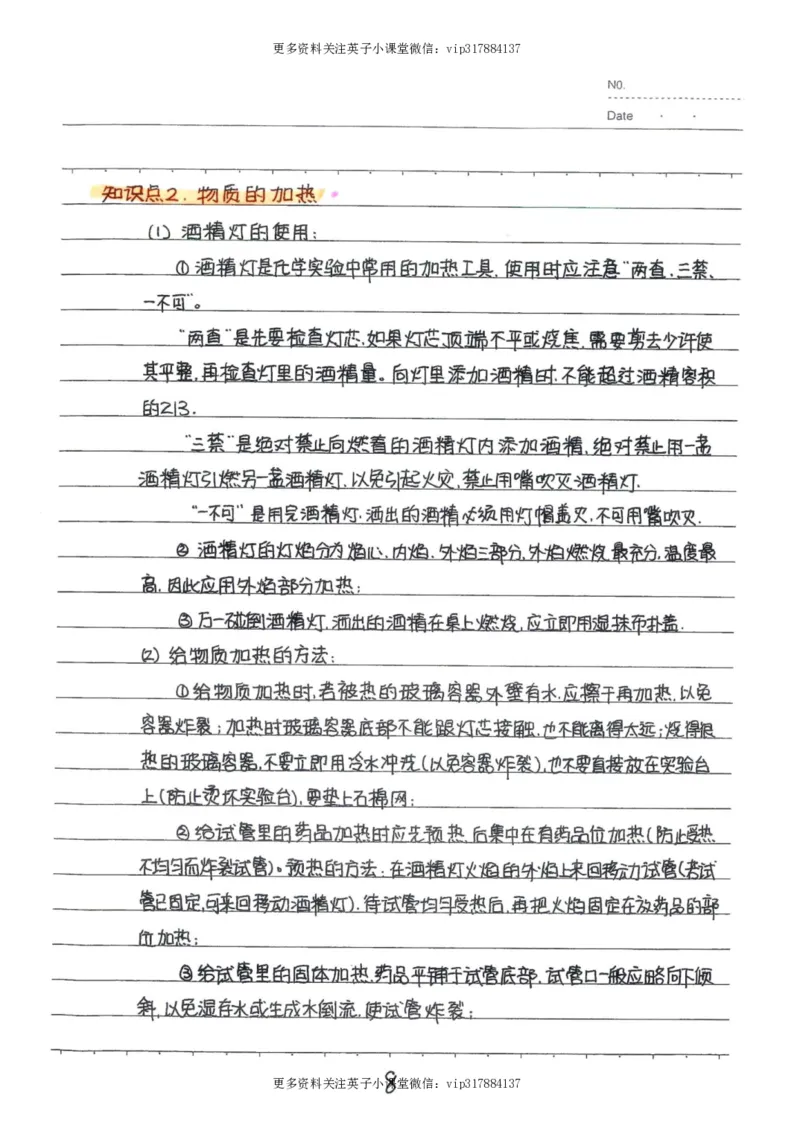 更多资料关注英子小课堂微信：vip317884137
NO.
Date
知识点2. 物质的加热
(1) 酒精灯的使用:
①酒精灯是化学实验中常用的加热工具, 使用时应注意"两查、三禁、
一不可"。
"两查"是先要检查灯芯,如果灯芯顶端不平或烧焦,需要剪去少许使
其平整,再检查灯里的酒精量。向灯里添加酒精时,不能超过酒精容积
的2/3.
"三禁"是绝对禁止向燃着的酒精灯内添加酒精,绝对禁止用一盏
酒精灯引燃另一盏酒精灯,以免引起火灾,禁止用嘴吹灭酒精灯.
"一不可"是用完酒精灯.洒出的酒精必须用灯帽盖灭,不可用嘴吹灭.
② 酒精灯的灯焰分为焰心、内焰、外焰三部分,外焰燃烧最充分,温度最
高,因此应用外焰部分加热;
③万一碰倒酒精灯,洒出的酒精在桌上燃烧,应立即用湿抹布扑盖.
(2) 给物质加热的方法:
①给物质加热时,若被热的玻璃容器外壁有水,应擦干再加热,以免
容器炸裂;加热时玻璃容器底部不能跟灯芯接触,也不能离得太远;烧得很
热的玻璃容器,不要立即用冷水冲洗(以免容器炸裂),也不要直接放在实验台
上(防止烫坏实验台),要垫上石棉网;
②给试管里的药品加热时应先预热,后集中在有药品位加热(防止受热
不均匀而炸裂试管)。预热的方法:在酒精灯火焰的外焰上来回移动试管(若试
管已固定,可来回移动酒精灯).待试管均匀受热后,再把火焰固定在放药品的部
位加热;
③给试管里的固体加热,药品平铺于试管底部,试管口一般应略向下倾
斜,以免湿存水或生成水倒流,使试管炸裂;
8
更多资料关注英子小课堂微信：vip317884137